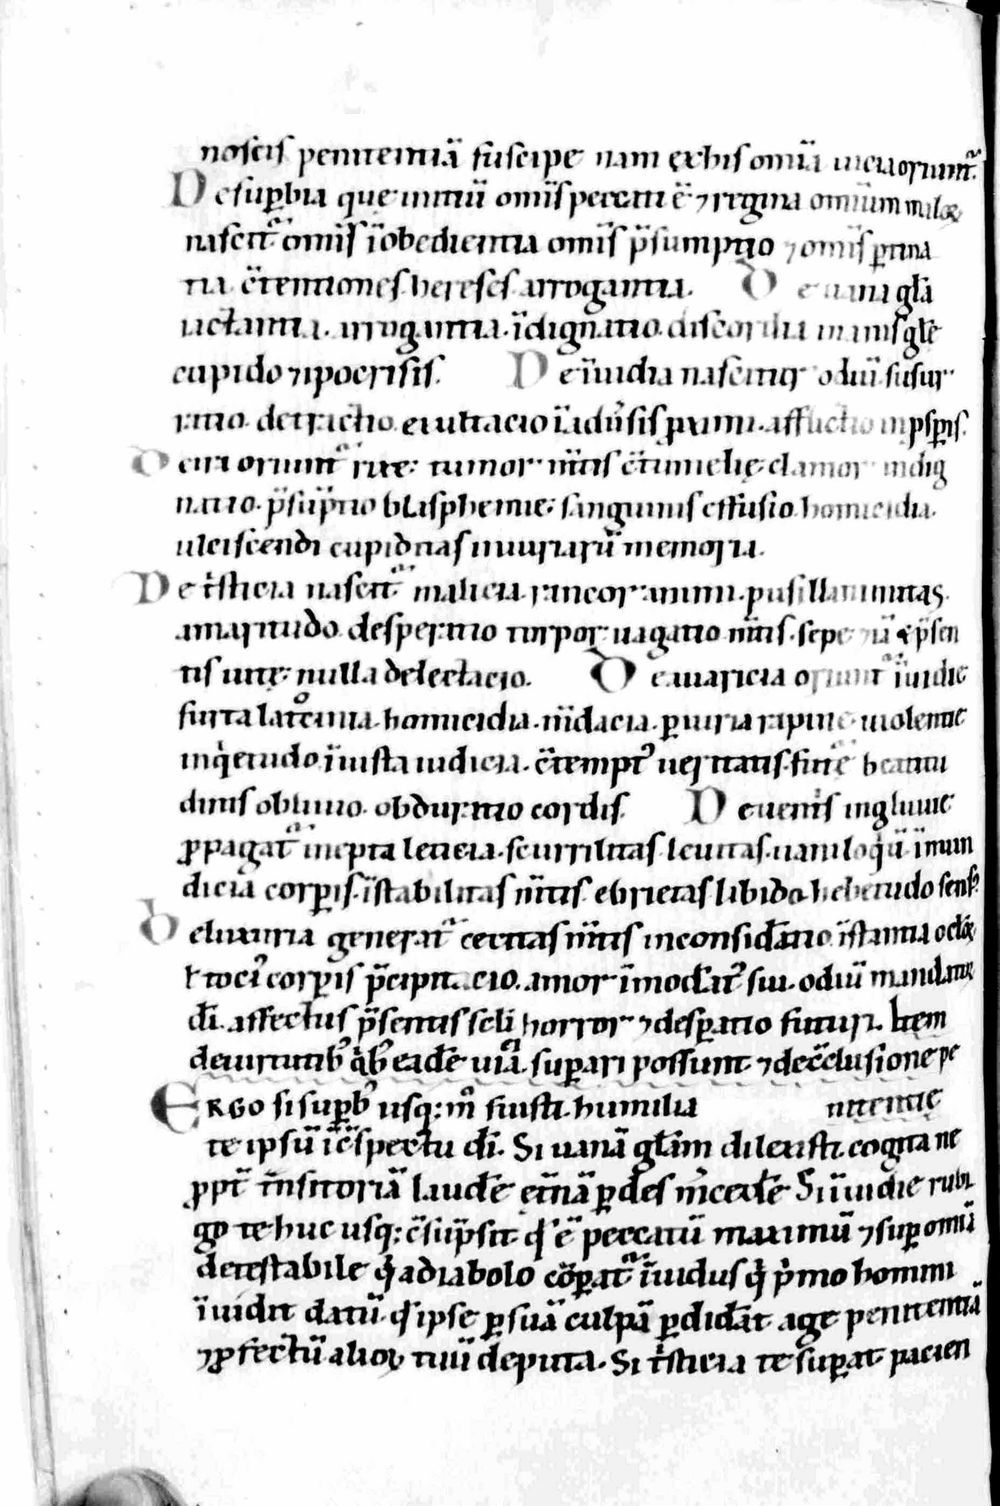 noscis penitentiā suscipe nam ęx his omīa uicia oriunt̄.
De sup̱bia que initiū omīs peccati ē ⁊ regina omīum maloꝝ
nascit̄ omīs īobedientia omīs p̄sumptio ⁊ omīs p̱tina
tia c̄tentiones hereses arrogantia. De uana gl̄a
iactantia. arrogantia. īdignatio. discordia inanis gl̄e
cupido ⁊ ipocrisis. De īuidia nascitur odiū. susur
ratio. detractio. exultacio ī aduˀsis ꝓximi. afflictio in psp̱is.
De ira oriunt̄ rixe. tumor m̄tis c̄tumelię. clamor indig
natio. p̄sūptio blasphemie. sanguinis effusio. homicidia.
ulciscendi cupiditas iniuriarū memoria.
De tˈsticia nascit̄ malicia. rancor animi. pusillanimitas.
amaritudo. desperatio torpor. uagatio m̄tis. sepe p̄sen
tis uitę nulla delectacio. De auaricia oriunt̄ īuidie
furta latrocinia. homicidia. m̄dacia. p̱iuria rapine uiolentie
inqˈetudo īiusta iudicia. c̄temptꝰ ueritatis. fut̄e beatitu
dinis obliuio. obduratio cordis. De uentˈs ingluuie
ꝓpagat̄ inepta leticia. scurrilitas. leuitas. uaniloqˈū īmun
dicia corp̱is. īstabilitas m̄tis ebrietas libido. hebetudo sensꝰ
De luxuria generat̄ cecitas m̄tis inconsid̄atio īstantia oc̄loꝝ
ł tociꝰ corp̱is p̄cipitacio. amor īmod̄atꝰ sui. odiū mandatoꝝ
dī. affectus p̄sentis sc̄li horror ⁊ desp̱atio futuri. Item
de uirtutibꝰ qˈbꝰ ead̄e uicia sup̱ari possunt ⁊ de c̄clusione pe
ERGO si sup̱bꝰ usq; m̊ fuisti. humilia nitentię
te ipsū ī c̄spectu dī. Si uanā gl̄am dilexisti. cogita ne
ꝓpt̄ t̄nsitoriā laud̄e et̄nā p̱des m̄ced̄e Si īuidie rubi
go te huc usq; c̄sūpsit. qˈ ē peccatū maximū ⁊ sup̱ omīa
detestabile qˈa diabolo c̄op̱at̄ īuidus qˈ pˈmo homini
īuidit datū. qˈ ipse p̱ suā culpā p̱did̄at age penitentiā
⁊ ꝓfectū alioꝝ tuū deputa. Si tˈsticia te sup̱at pacien